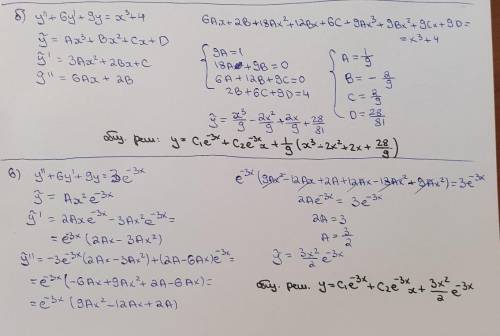 б) y'' + 6y' + 9y = x³ + 4
ỹ = Ax³ + Bx² + Cx + D
ỹ' = 3Ax² + 2Bx + C
ỹ'' = 6Ax + 2B
6Ax + 2B + 18Ax² + 12Bx + 6C + 9Ax³ + 9Bx² + 9Cx + 9D =
= x³ + 4
{ 9A = 1
18A + 9B = 0
6A + 12B + 9C = 0
2B + 6C + 9D = 4
{ A = 1/9
B = - 2/9
C = 2/9
D = 28/81
ỹ = x³/9 - 2x²/9 + 2x/9 + 28/81
общ. реш: y = C₁e^-3x + C₂e^-3x x + 1/9 (x³ - 2x² + 2x + 28/9)
в) y'' + 6y' + 9y = 3e^-3x
ỹ = Ax² e^-3x
ỹ' = 2Axe^-3x - 3Ax²e^-3x =
= e^-3x (2Ax - 3Ax²)
ỹ'' = -3e^-3x (2Ax - 3Ax²) + (2A - 6Ax)e^-3x =
= e^-3x (-6Ax + 9Ax² + 2A - 6Ax) =
= e^-3x (9Ax² - 12Ax + 2A)
e^-3x (9Ax² - 12Ax + 2A + 12Ax - 18Ax² + 9Ax²) = 3e^-3x
2Ae^-3x = 3e^-3x
2A = 3
A = 3/2
ỹ = 3x²/2 e^-3x
общ. реш. y = C₁e^-3x + C₂e^-3x x + 3x²/2 e^-3x